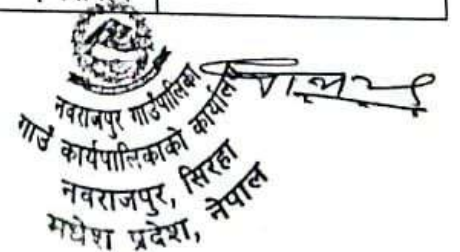 नवराजपुर गाउँपालिका
गाउँ कार्यपालिकाको कार्यालय
नवराजपुर, सिरहा
मधेश प्रदेश, नेपाल